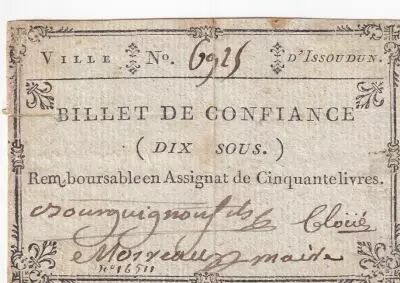 VILLE N°. 6925 D'ISSOUDUN.
BILLET DE CONFIANCE
( DIX SOUS. )
Remboursable en Assignat de Cinquante livres.
Bourguignon fils Cloüé
Moreau maire
n° 16511